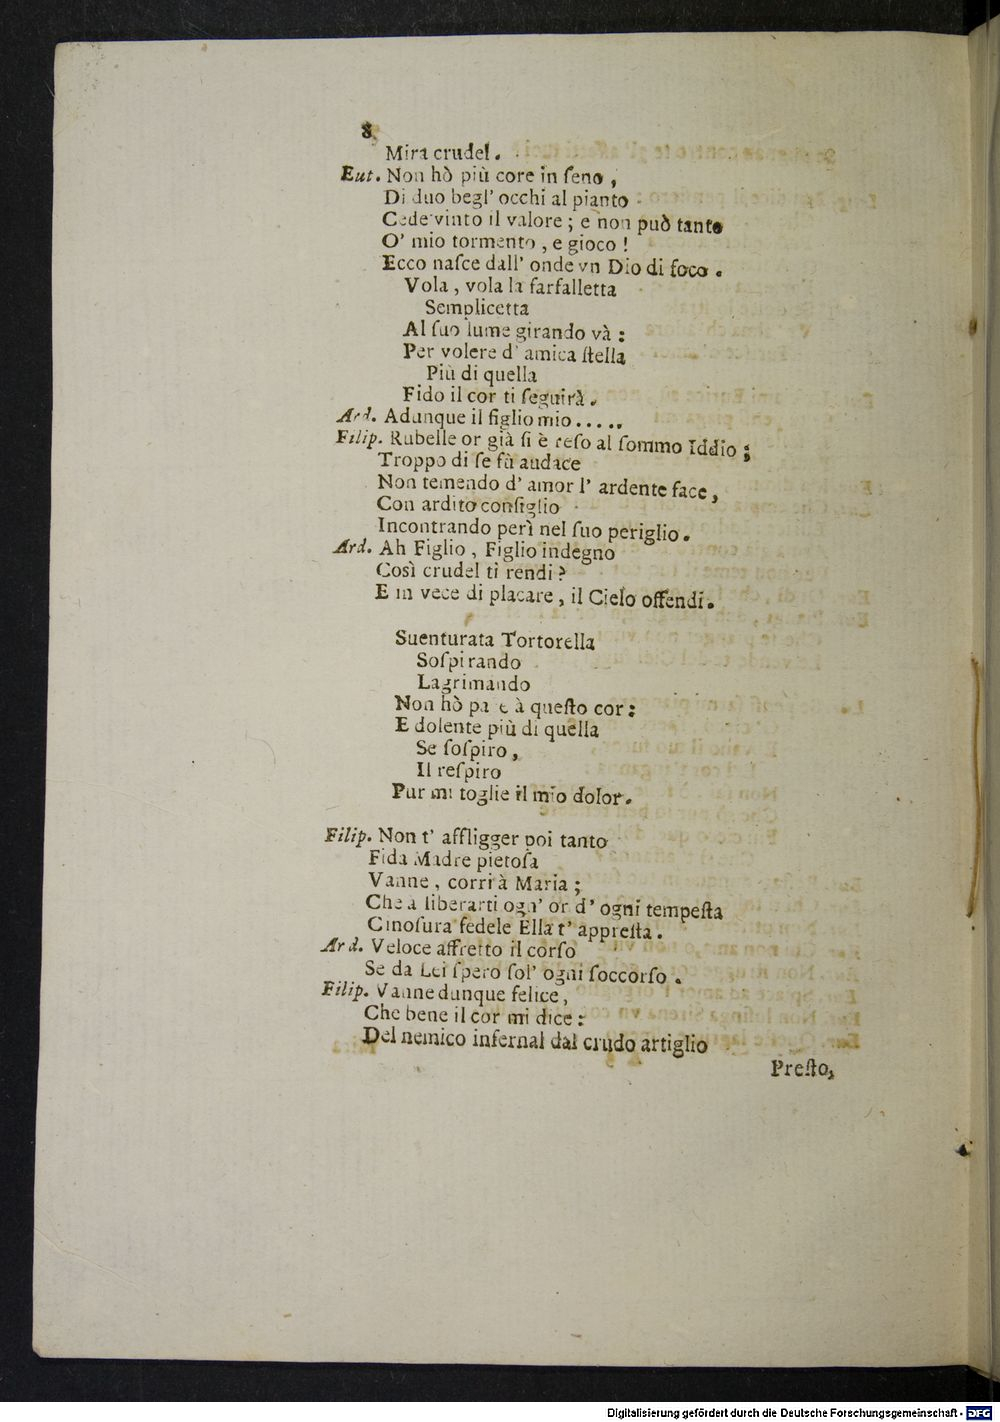 8
Mira crudel.
Eut. Non hò più core in ſeno,
Di duo begl' occhi al pianto
Cede vinto il valore; e non può tanto
O' mio tormento, e gioco!
Ecco naſce dall' onde vn Dio di foco.
Vola, vola la farfalletta
Semplicetta
Al ſuo lume girando và:
Per volere d' amica ſtella
Più di quella
Fido il cor ti ſeguirà.
Ard. Adunque il figlio mio.....
Filip. Rubelle or già ſi è reſo al ſommo Iddio;
Troppo di ſe fù audace
Non temendo d' amor l' ardente face,
Con ardito conſiglio
Incontrando perì nel ſuo periglio.
Ard. Ah Figlio, Figlio indegno
Così crudel ti rendi?
E in vece di placare, il Cielo offendi.
Suenturata Tortorella
Soſpirando
Lagrimando
Non hò pace à queſto cor:
E dolente più di quella
Se ſoſpiro,
Il reſpiro
Pur mi toglie il mio dolor.
Filip. Non t' affligger poi tanto
Fida Madre pietoſa
Vanne, corri à Maria;
Che a liberarti ogn' or d' ogni tempeſta
Cinoſura fedele Ella t' appreſta.
Ard. Veloce affretto il corſo
Se da Lei ſpero ſol' ogni ſoccorſo.
Filip. Vanne dunque felice,
Che bene il cor mi dice:
Del nemico infernal dal crudo artiglio
Preſto,
Digitalisierung gefördert durch die Deutsche Forschungsgemeinschaft - DFG